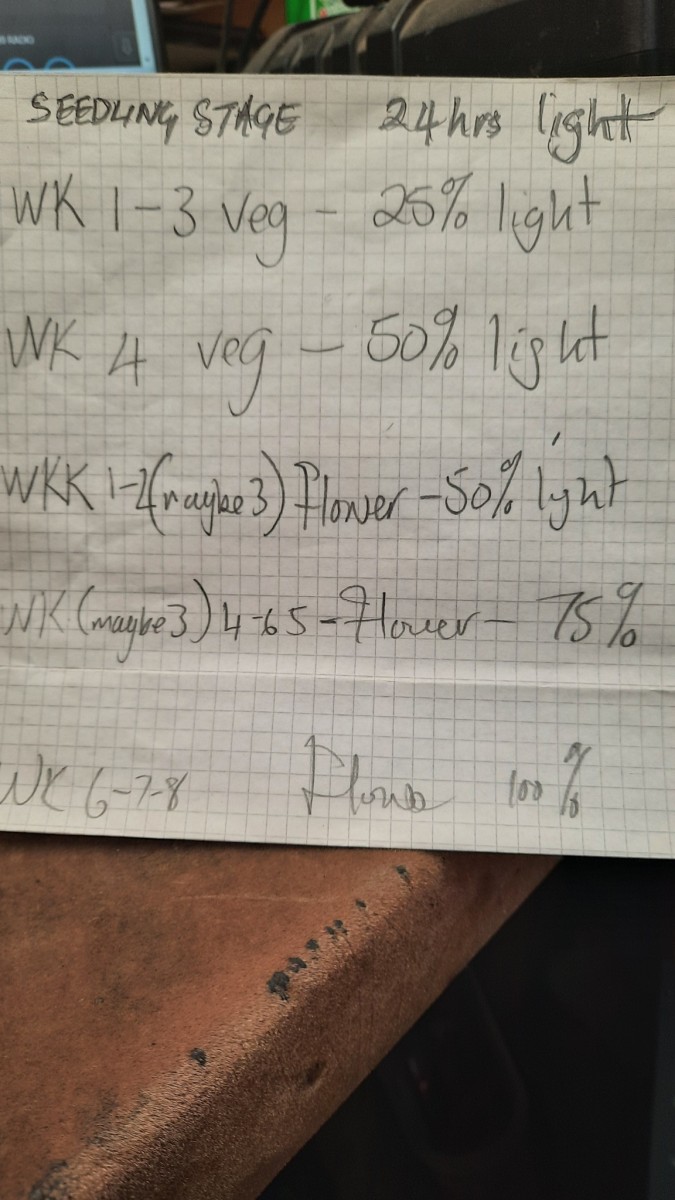 RADIO
SEEDLING STAGE 24hrs light
WK 1-3 veg - 25% light
WK 4 veg - 50% light
WKK 1-2(maybe 3) Flower - 50% light
WK (maybe 3) 4-65 - Flower - 75%
WK 6-7-8 Flower 100%